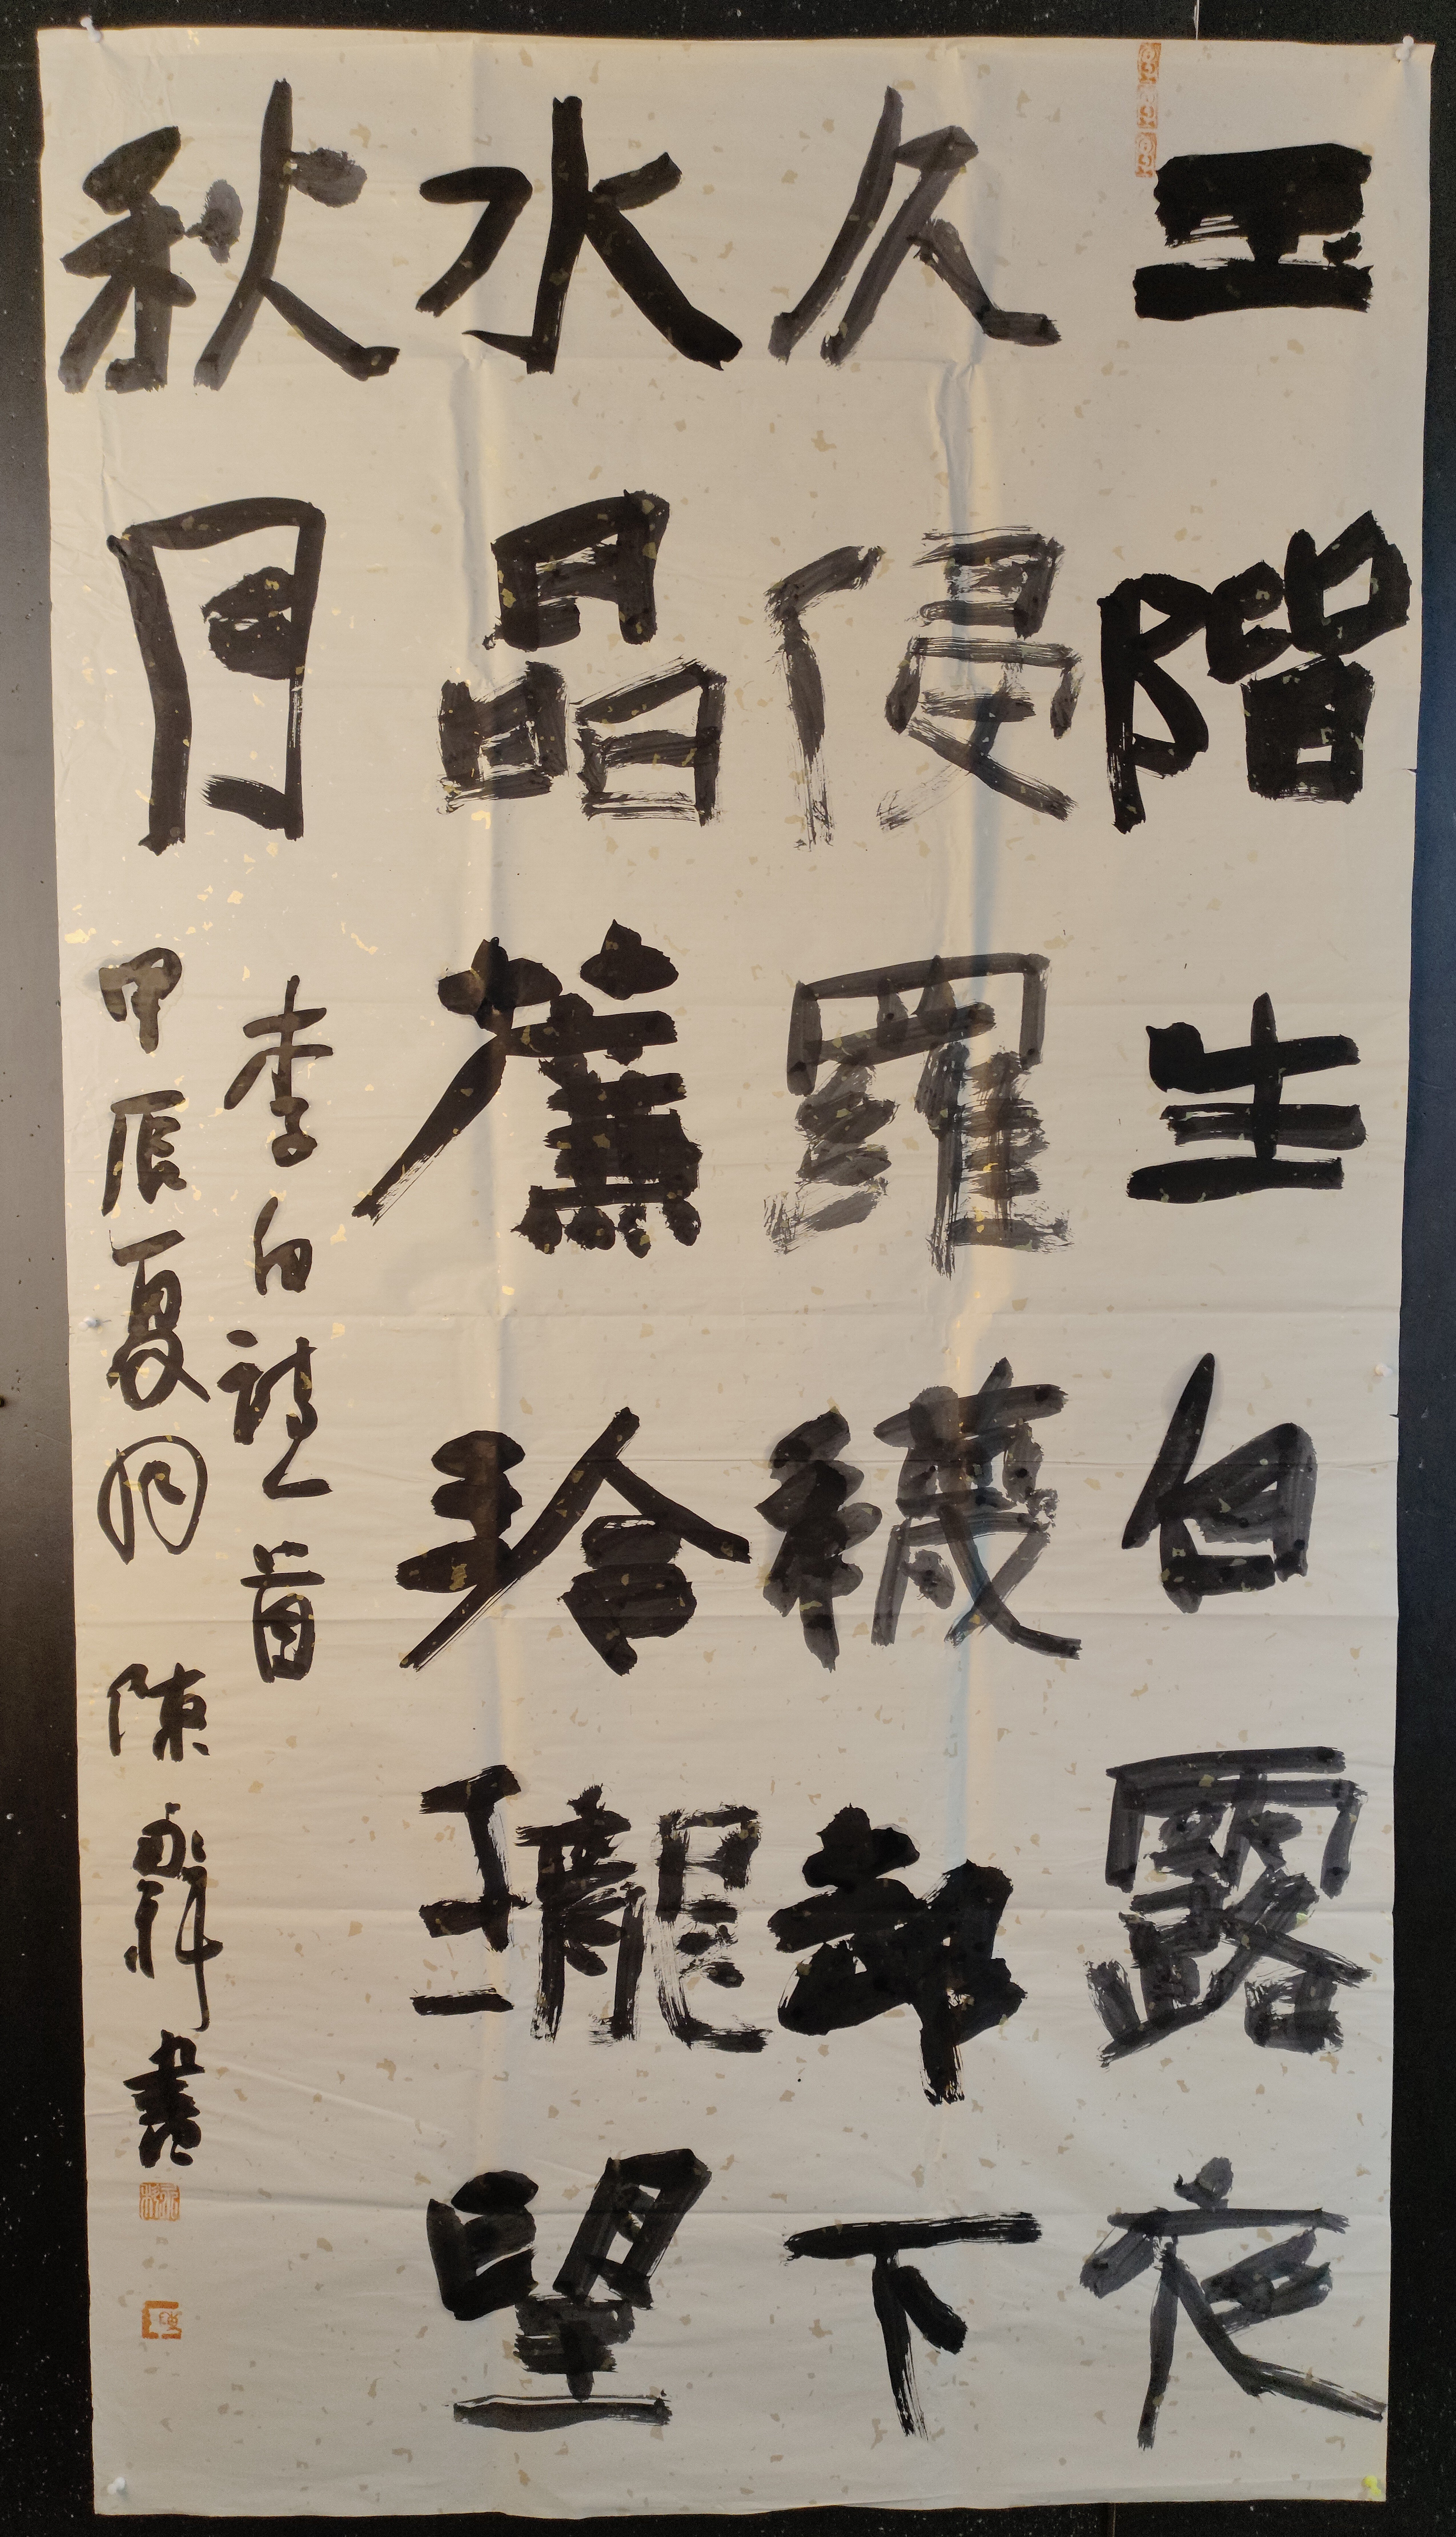 玉階生白露夜
久侵羅襪却下
水晶簾玲瓏望
秋月
李白詩一首
甲辰夏月 陳永 書